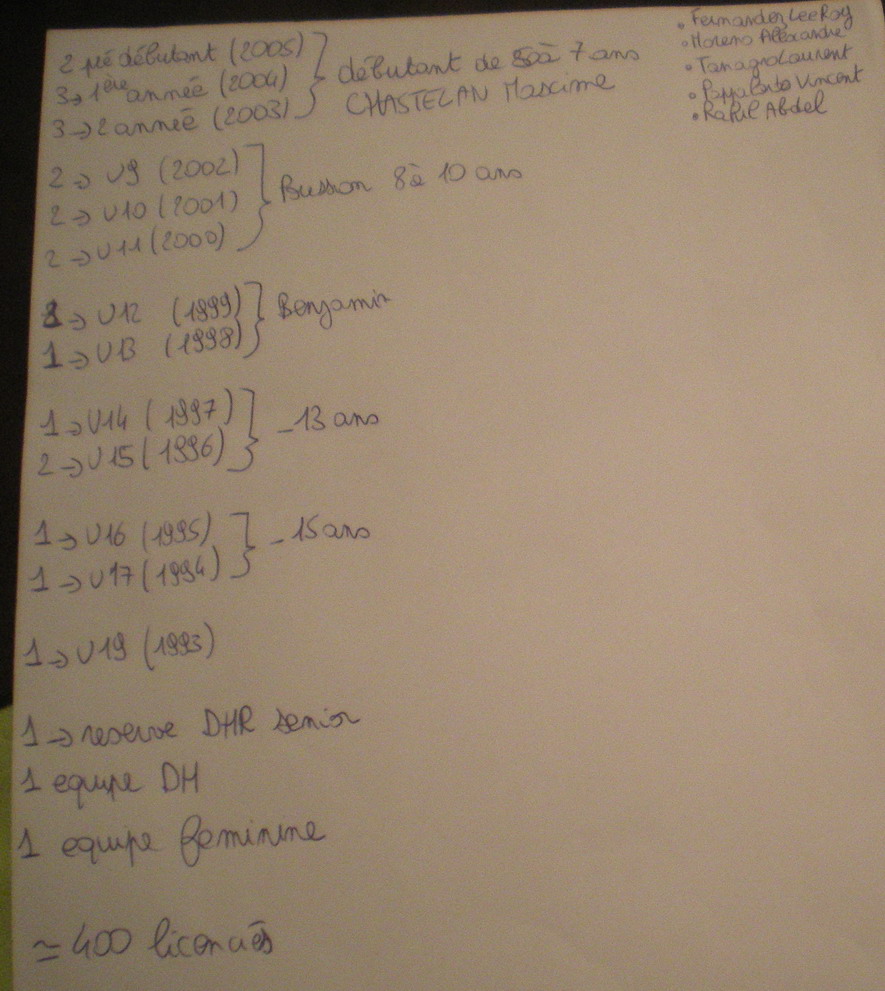 2 pré débutant (2005)
3→1ère année (2004)
3→2 année (2003)
débutant de à 7 ans
CHASTELAN Maxime
• Fernandez LeeRoy
• Moreno Alexandre
• Tanagro Laurent
• Vincent
• Rafil Abdel
2→ U9 (2002)
2→ U10 (2001)
2→ U11 (2000)
Busson 8 à 10 ans
1→ U12 (1999)
1→ U13 (1998)
Benjamin
1→ U14 (1997)
2→ U15 (1996)
_13 ans
1→ U16 (1995)
1→ U17 (1994)
_15 ans
1→ U19 (1993)
1→ reserve DHR senior
1 equipe DH
1 equipe feminine
≃ 400 licenciés